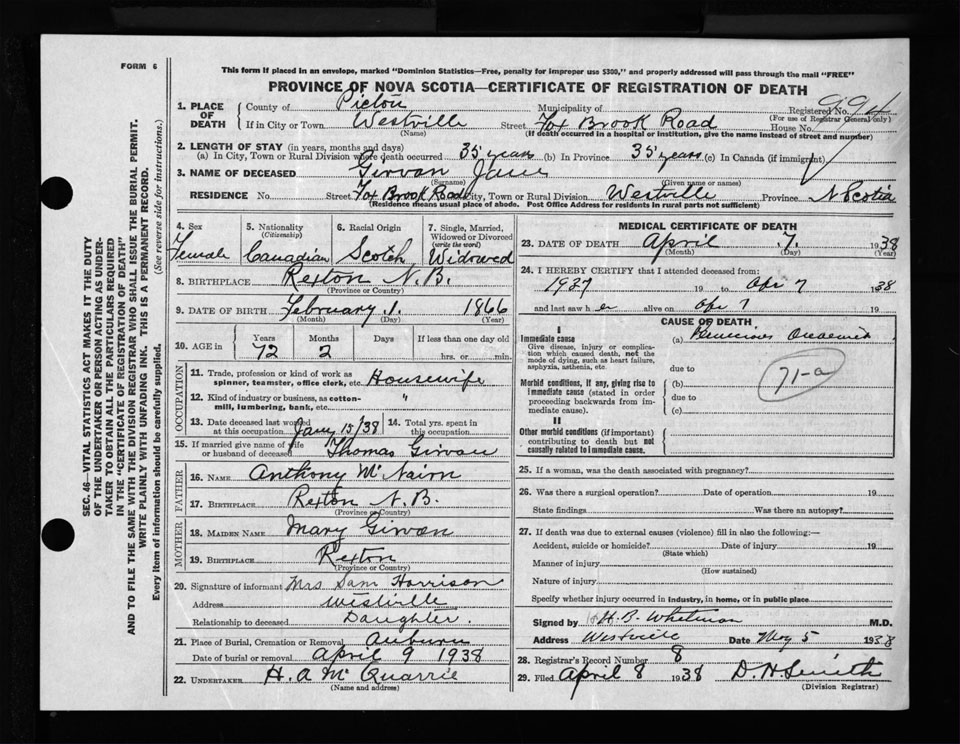 FORM 6
This form if placed in an envelope, marked "Dominion Statistics—Free, penalty for improper use $300," and properly addressed will pass through the mail "FREE"
PROVINCE OF NOVA SCOTIA—CERTIFICATE OF REGISTRATION OF DEATH
1. PLACE OF DEATH County of Pictou Municipality of Registered No. 994
(For use of Registrar General only)
If in City or Town Westville Street Fox Brook Road House No.
(Name) (If death occurred in a hospital or institution, give the name instead of street and number)
2. LENGTH OF STAY (in years, months and days)
(a) In City, Town or Rural Division where death occurred 35 years (b) In Province 35 years (c) In Canada (if immigrant)
3. NAME OF DECEASED Girvan Jane
(Surname) (Given name or names)
RESIDENCE No. Street Fox Brook Road City, Town or Rural Division Westville Province N Scotia
(Residence means usual place of abode. Post Office Address for residents in rural parts not sufficient)
4. Sex 5. Nationality (Citizenship) 6. Racial Origin 7. Single, Married, Widowed or Divorced (write the word)
Female Canadian Scotch Widowed
8. BIRTHPLACE Rexton N. B.
(Province or Country)
9. DATE OF BIRTH February 1. 1866
(Month) (Day) (Year)
10. AGE in Years Months Days If less than one day
72 2 hrs. or min.
OCCUPATION
11. Trade, profession or kind of work as spinner, teamster, office clerk, etc. Housewife
12. Kind of industry or business, as cotton-mill, lumbering, bank, etc. "
13. Date deceased last worked at this occupation Jany 15/38 14. Total yrs. spent in this occupation
15. If married give name of wife or husband of deceased Thomas Girvan
FATHER
16. NAME Anthony McNairn
17. BIRTHPLACE Rexton N. B.
(Province or Country)
MOTHER
18. MAIDEN NAME Mary Girvan
19. BIRTHPLACE Rexton
(Province or Country)
20. Signature of informant Mrs Sam Harrison
Address Westville
Relationship to deceased Daughter.
21. Place of Burial, Cremation or Removal Auburn
Date of burial or removal April 9 1938
22. UNDERTAKER H. A McQuarrie
(Name and address)
MEDICAL CERTIFICATE OF DEATH
23. DATE OF DEATH April 7. 1938
(Month) (Day) (Year)
24. I HEREBY CERTIFY that I attended deceased from:
1937 19 to Apr 7 1938
and last saw h er alive on Apr 7 19
CAUSE OF DEATH
I
Immediate cause (a) Pernicious Anaemia
Give disease, injury or complication which caused death, not the mode of dying, such as heart failure, asphyxia, asthenia, etc.
due to
71-a
Morbid conditions, if any, giving rise to immediate cause (stated in order proceeding backwards from immediate cause). (b)
due to
(c)
II
Other morbid conditions (if important) contributing to death but not causally related to immediate cause.
25. If a woman, was the death associated with pregnancy?
26. Was there a surgical operation? Date of operation 19
State findings Was there an autopsy?
27. If death was due to external causes (violence) fill in also the following:—
Accident, suicide or homicide? Date of injury 19
(State which)
Manner of injury
(How sustained)
Nature of injury
Specify whether injury occurred in industry, in home, or in public place
Signed by H. B. Whitman M.D.
Address Westville Date May 5 1938
28. Registrar's Record Number 8
29. Filed April 8 1938 D. H. Smith
(Division Registrar)
SEC. 46—VITAL STATISTICS ACT MAKES IT THE DUTY
OF THE UNDERTAKER OR PERSON ACTING AS UNDER-
TAKER TO OBTAIN ALL THE PARTICULARS REQUIRED
IN THE "CERTIFICATE OF REGISTRATION OF DEATH"
AND TO FILE THE SAME WITH THE DIVISION REGISTRAR WHO SHALL ISSUE THE BURIAL PERMIT.
WRITE PLAINLY WITH UNFADING INK. THIS IS A PERMANENT RECORD.
Every item of information should be carefully supplied. (See reverse side for instructions.)